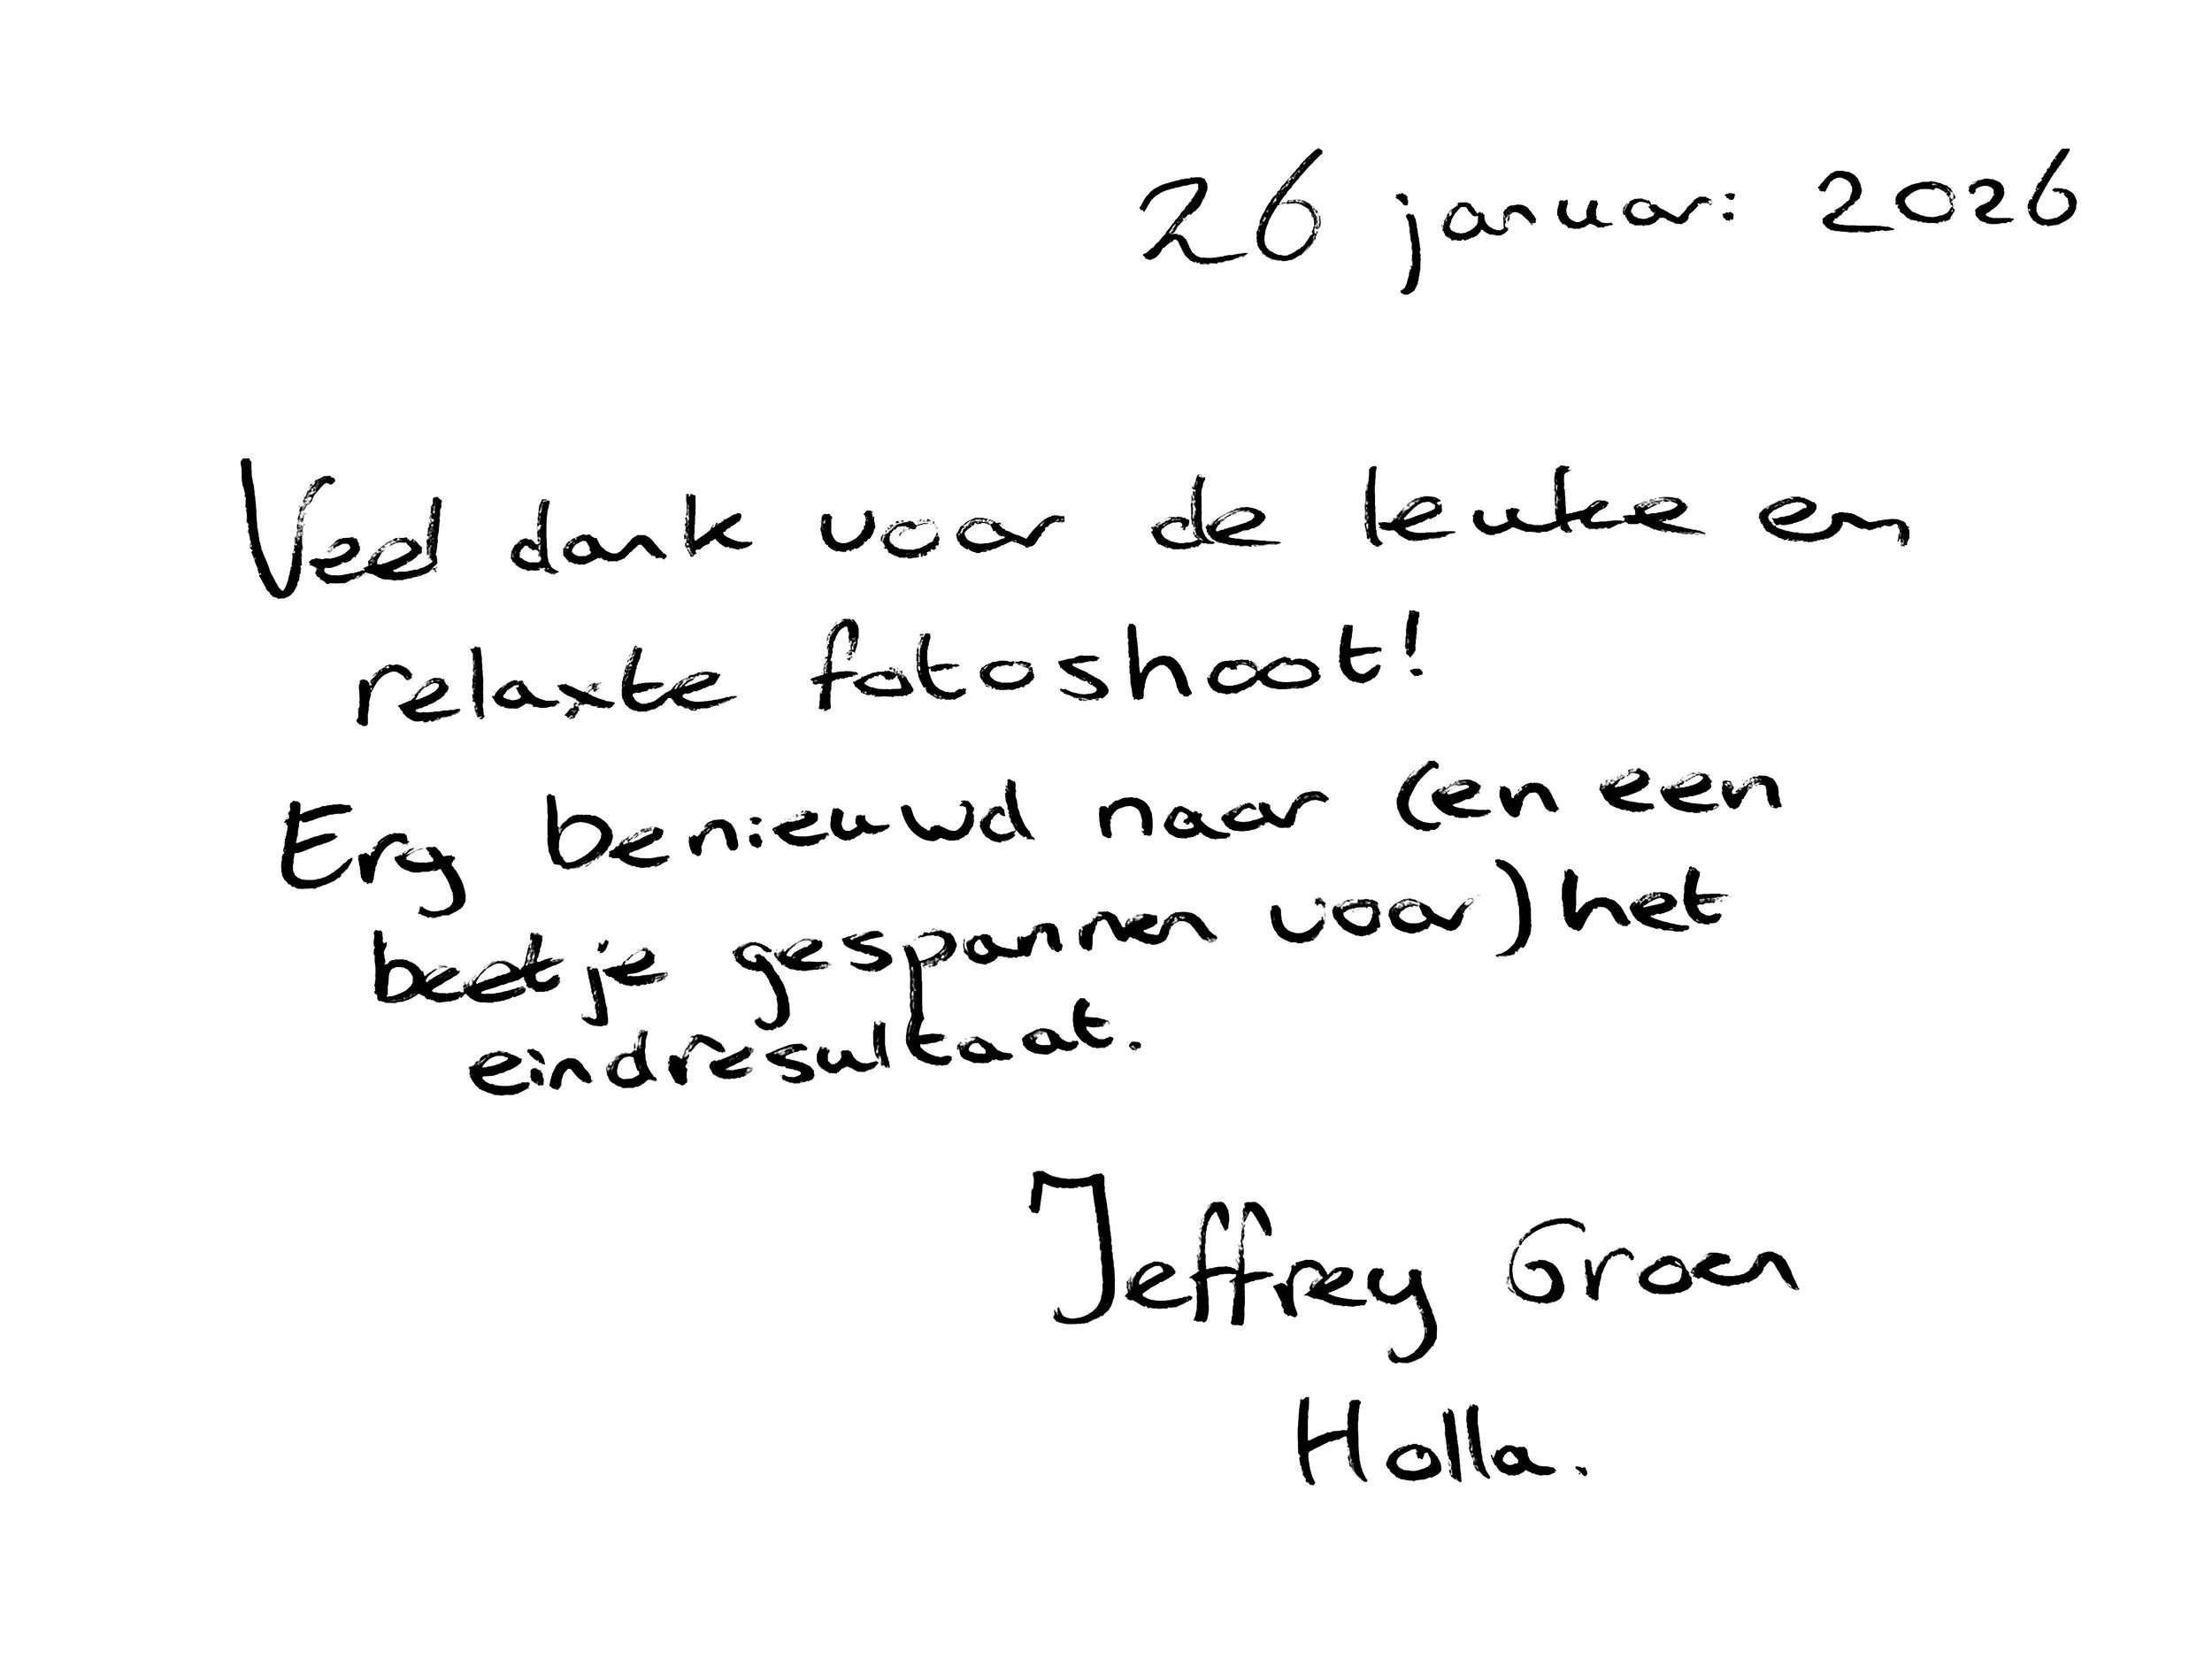 26 januari 2026
Veel dank voor de leuke en
relaxte fotoshoot!
Erg benieuwd naar (en een
beetje gespannen voor) het
eindresultaat.
Jeffrey Groen
Holla.